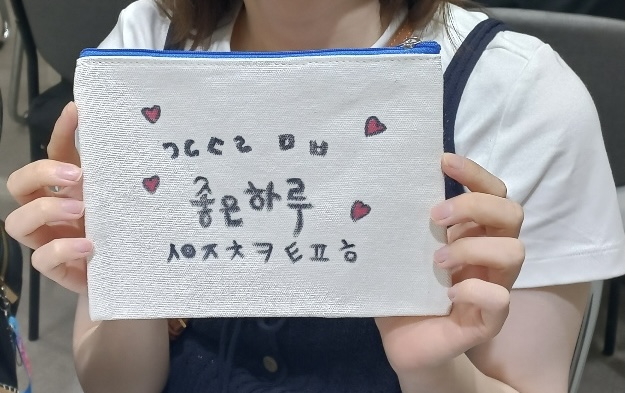 ㄱㄴㄷㄹ ㅁㅂ
좋은하루
ㅅㅇㅈㅊㅋㅌㅍㅎ